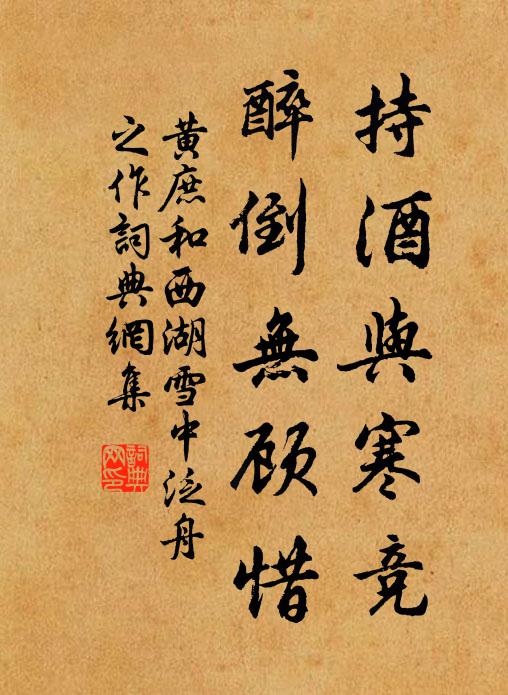 持酒與寒竞
醉倒無顾惜
黄庶和西湖雪中泛舟
之作詞典網集
詞典
网印